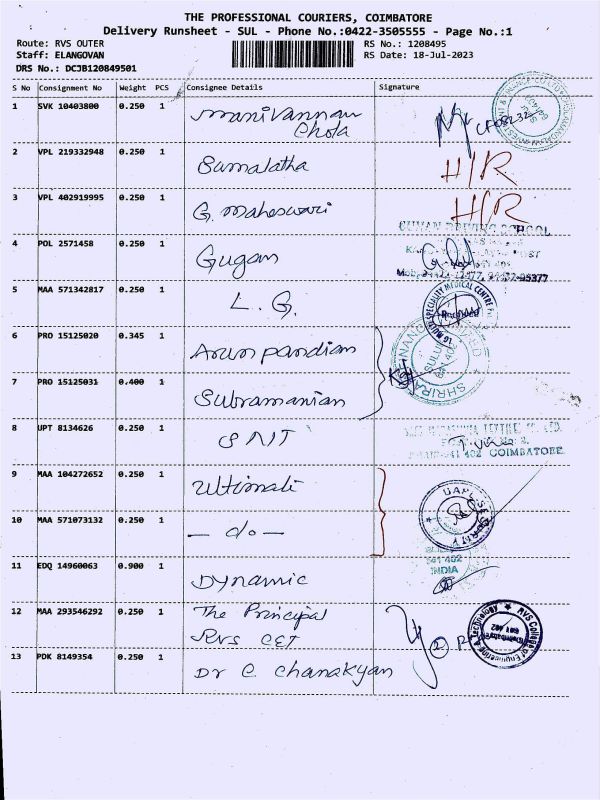 THE PROFESSIONAL COURIERS, COIMBATORE
Delivery Runsheet - SUL - Phone No.:0422-3505555 - Page No.:1
Route: RVS OUTER
RS No.: 1208495
Staff: ELANGOVAN
RS Date: 18-Jul-2023
DRS No.: DCJB120849501
S No Consignment No Weight PCS Consignee Details Signature
1 SVK 10403800 0.250 1 Manivannan
Chola
2 VPL 219332948 0.250 1 Sumalatha H/R
3 VPL 402919995 0.250 1 G. Maheswari H/R
DRIVING SCHOOL
4 POL 2571458 0.250 1 Gugan
5 MAA 571342817 0.250 1 L. G.
SPECIALITY MEDICAL CENTRE
6 PRO 15125020 0.345 1 Arun pandian
SULUR
7 PRO 15125031 0.400 1 Subramanian
8 UPT 8134626 0.250 1 SNT
641 402 COIMBATORE
9 MAA 104272652 0.250 1 Ultimate
10 MAA 571073132 0.250 1 — do —
641 402
INDIA
11 EDQ 14960063 0.900 1 Dynamic
12 MAA 293546292 0.250 1 The Principal
RVS CET
RVS College of Engineering & Technology
13 PDK 8149354 0.250 1 Dr C Chanakyan